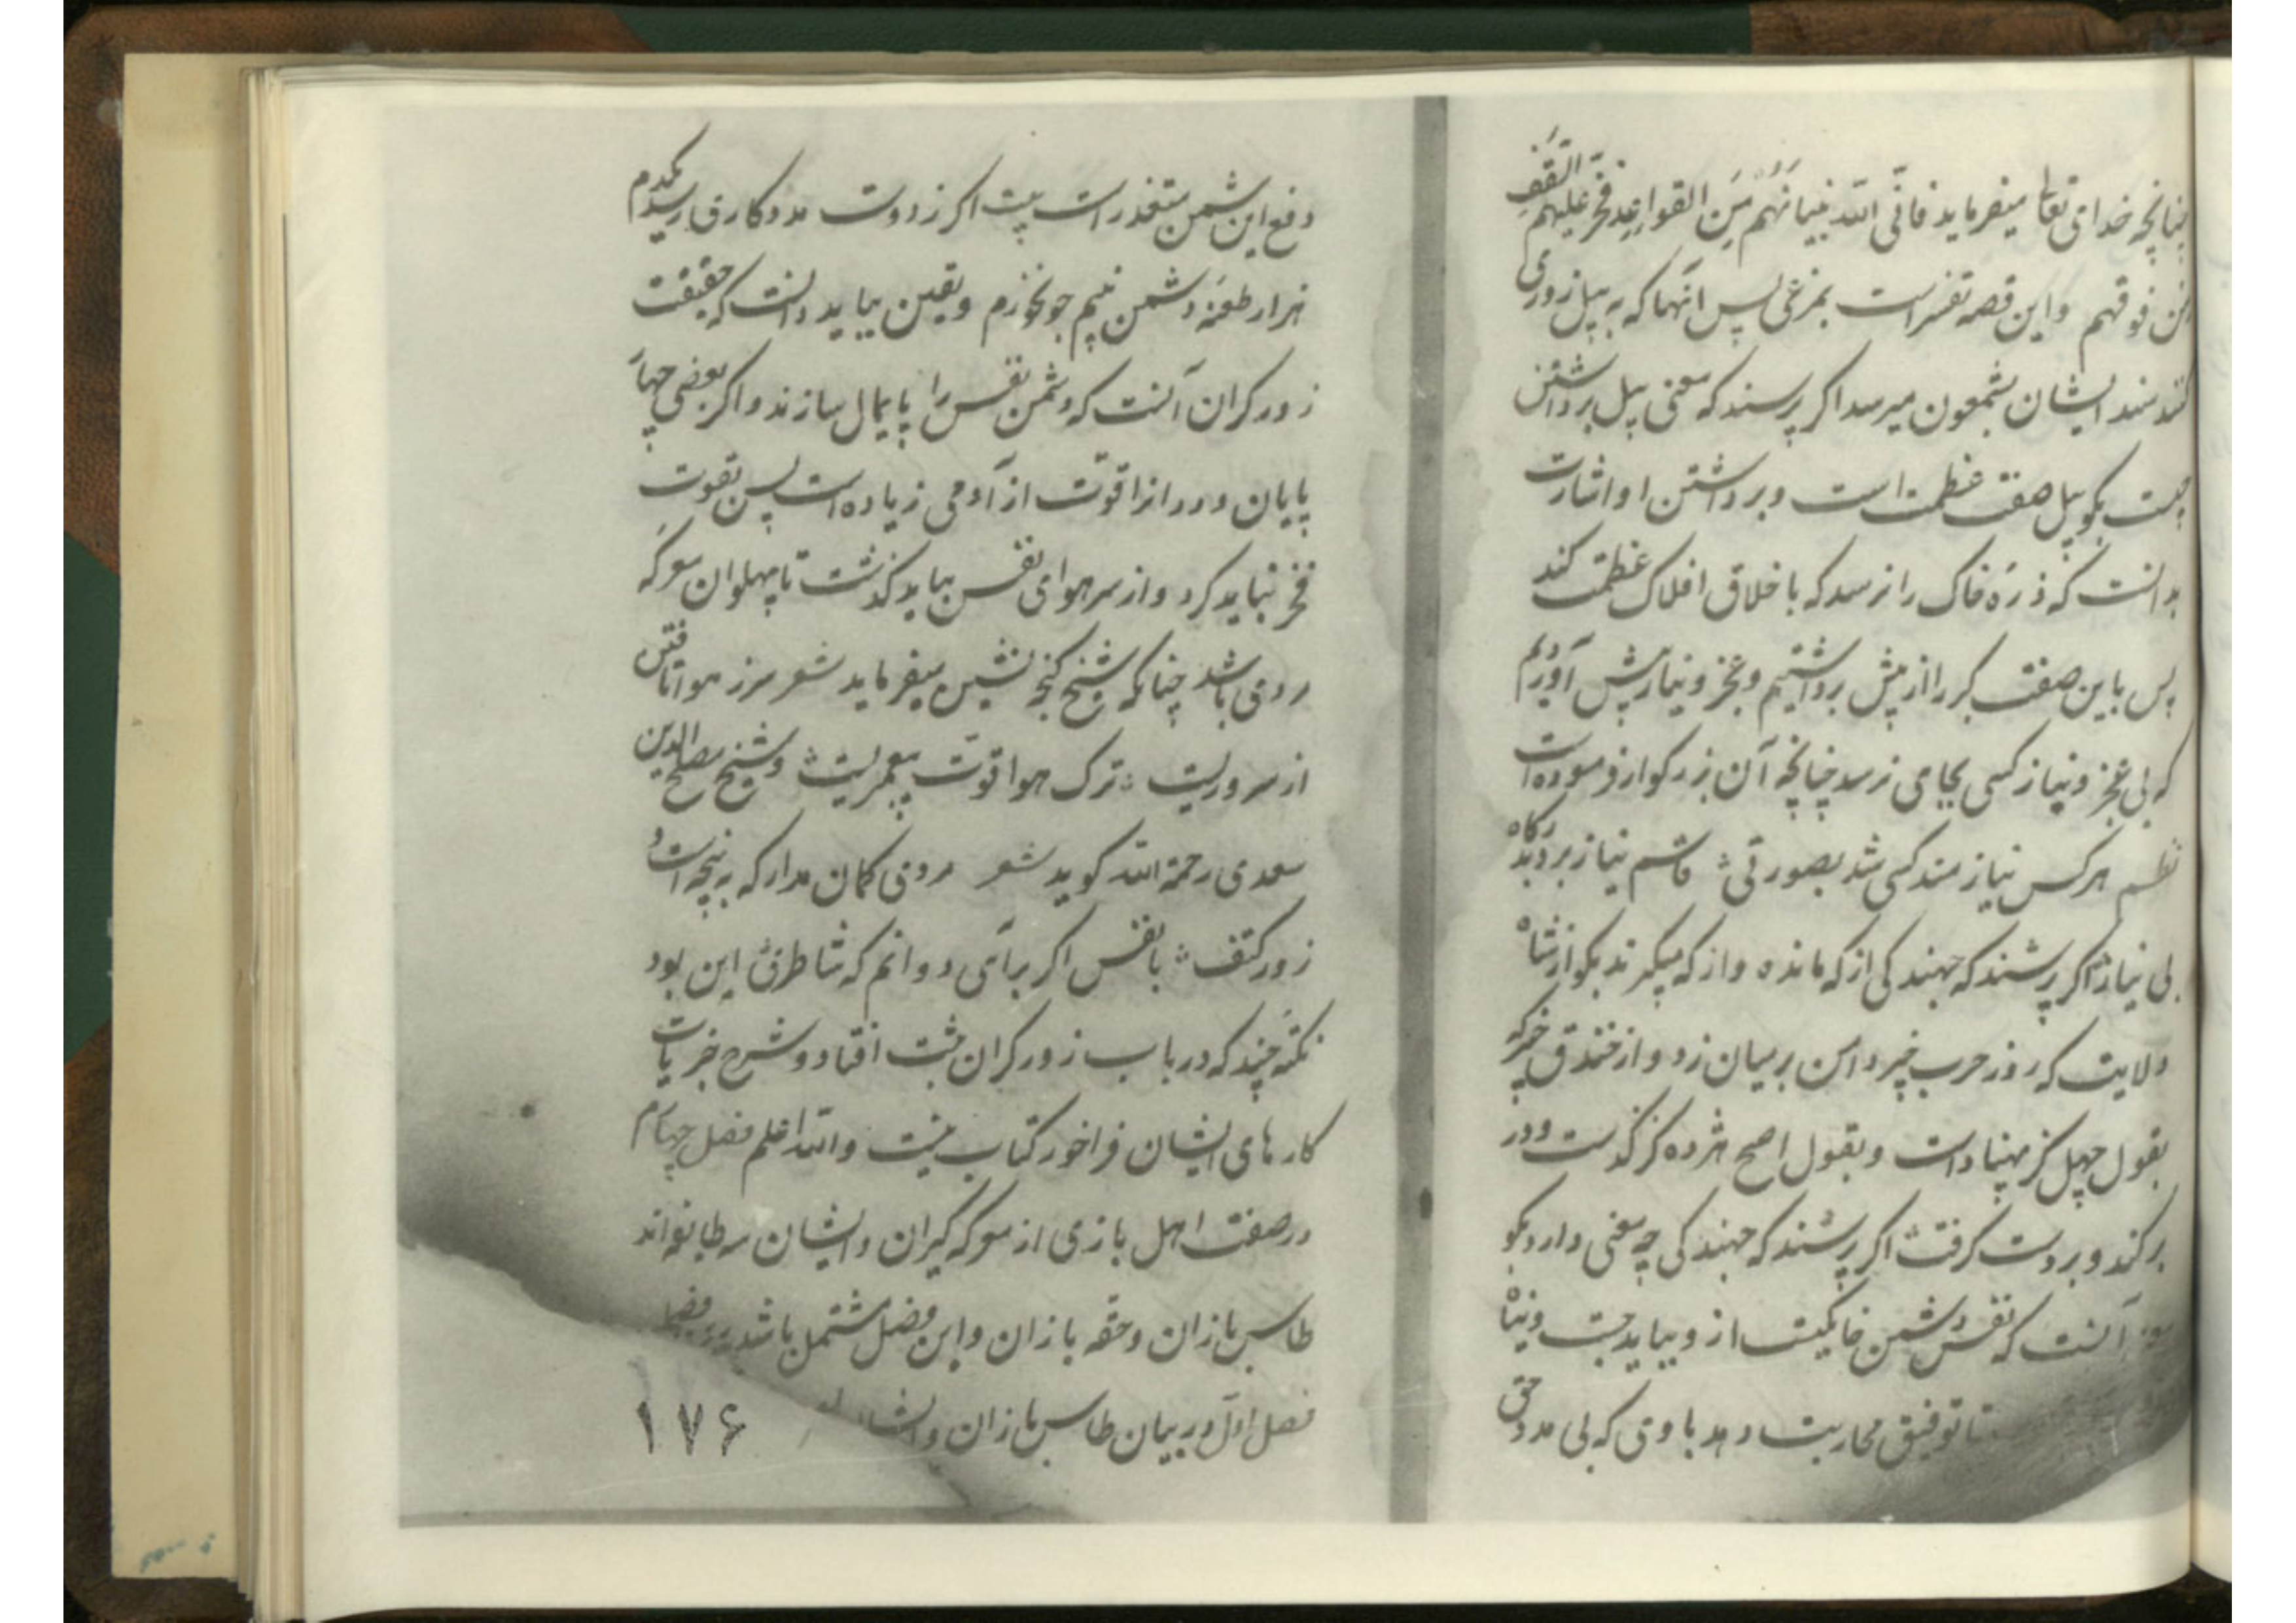 چنانچه خدای تعالی میفرماید فاتی الله بنیانهم من القواعد فخر علیهم السقف
من فوقهم واین قصه تفسر است بمرغی پس آنها که به پیل زوری
کنند سند ایشان بشمعون میرسد اکر پرسند که معنی پیل برداشتن
چیست بکو پیل صفت عظمت است وبرداشتن او اشارت
بدانست که ذره خاک را نرسد که با خلاق افلاک عظمت کند
پس باین صفت کبر را از پیش برداشتیم وعجز ونیاز پیش آوردیم
که بی عجز ونیاز کسی بجای نرسد چنانچه آن بزرکوار فرموده است
نظم هرکس نیازمند کسی شد بصورتی قاسم نیاز برد بدرکاه
بی نیاز اکر پرسند که جهندکی از که مانده واز که میکیرند بکو از شاه
ولایت که روز حرب خیبر دامن بر میان زد واز خندق خیبر که
بقول چهل کز پهنا داشت وبقول اصح هژده کز کذشت ودر
برکند وبر دست کرفت اکر پرسند که جهندکی چه معنی دارد بکو
آنست که نفس دشمن خانکیست ازو بباید جست وپناه
تا توفیق محاربت دهد با وی که بی مدد حق
دفع این دشمن متعذر است بیت اکر ز دوست مددکاری رسد یکدم
هزار طعنه دشمن بنیم جو نخرم ویقین بباید دانست که حقیقت
زورکران آنست که دشمن نفس را پایمال سازند واکر بعضی چهار
پایان ودد را قوت از آدمی زیاده است پس بقوت
فخر نباید کرد واز سر هوای نفس بباید کذشت تا پهلوان معرکه
مردی باشد چنانکه شیخ کنجه نشین میفرماید شعر سر ز هوا تافتن
از سروریست ترک هوا قوت پیغمبریست وشیخ مصلح الدین
سعدی رحمة الله کوید شعر مردی کمان مدار که به پنجه است و
زور کتف با نفس اکر برآی دوانم که شاطری این بود
نکته چند که در باب زورکران مثبت افتاد وشرح جزییات
کارهای ایشان فراخور کتاب نیست والله اعلم فصل چهارم
در صفت اهل بازی از معرکه کیران وایشان سه طایفه اند
طاس بازان وحقه بازان واین فصل مشتمل باشد
فصل اول در بیان طاس بازان
۱۷۶